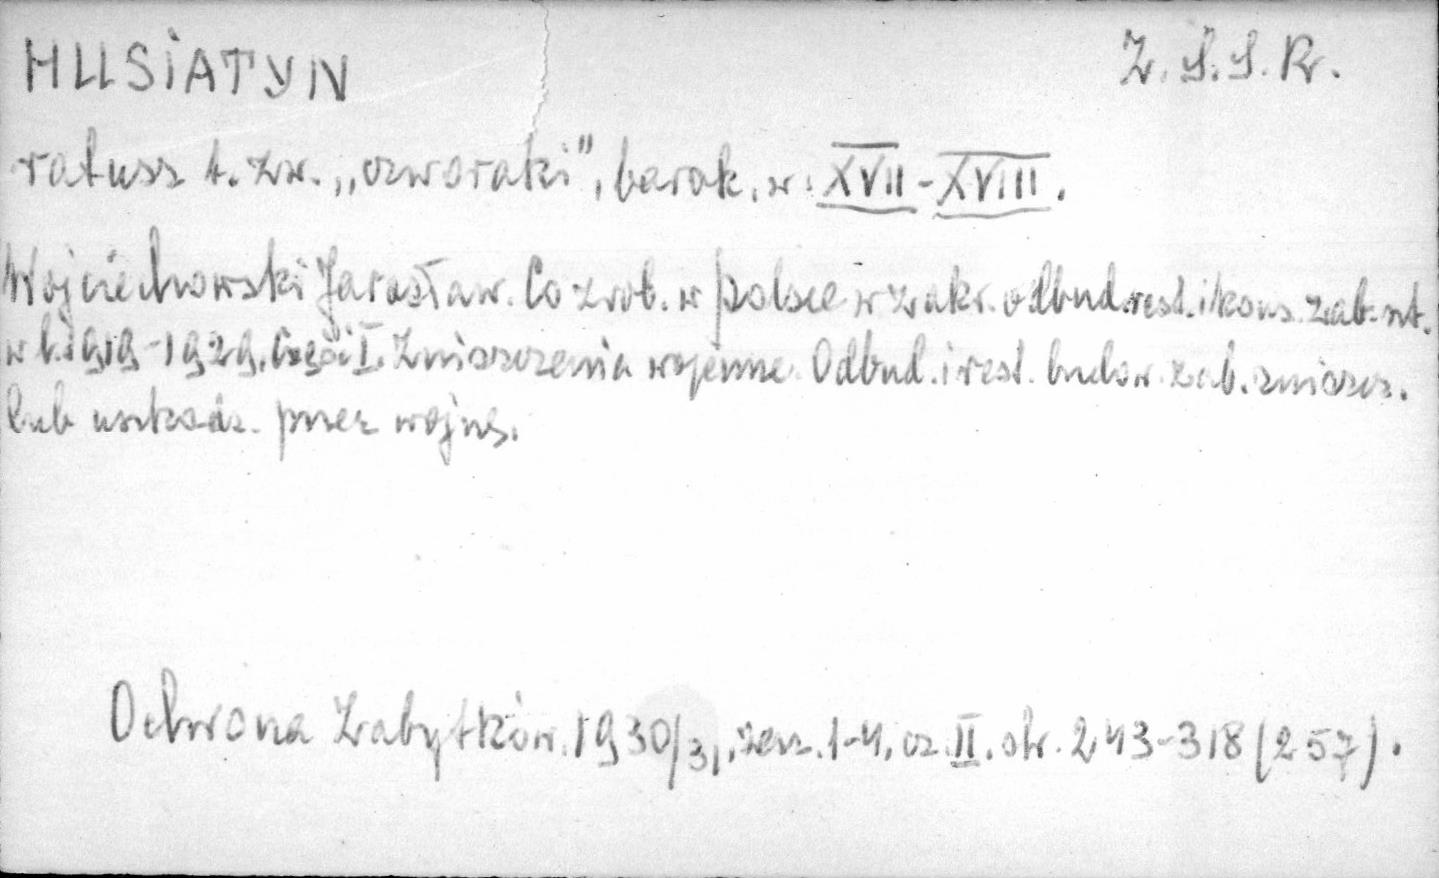 HUSIATYN Z.S.S.R.
ratusz t. zw. „czworaki”, barok, w. XVII-XVIII.
Wojciechowski Jarosław. Co zrob. w Polsce w zakr. odbud. rest. i kons. zab. szt.
w l. 1919-1929. Część I. Zniszczenia wojenne. Odbud. i rest. budow. zab. zniszcz.
lub uszkodz. przez wojnę.
Ochrona Zabytków. 1930/31, zesz. 1-4, cz. II. str. 243-318 (257).